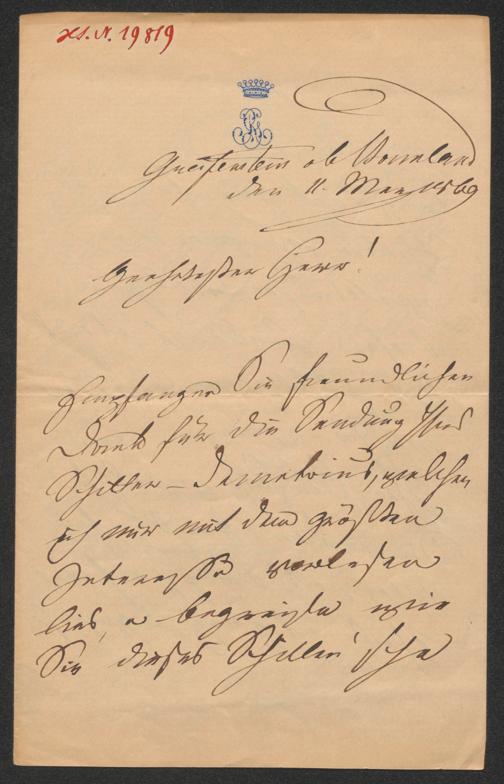 H.I.N. 19819
Greifenstein ob Bonnland
den 11. May 1869
Geehrtester Herr!
Empfangen Sie freundlichen
Dank für die Sendung Ihres
Schiller-Demetrius, welchen
ich mir mit dem größten
Interesse vorlesen
lies, u begreife wie
Sie dieses Schiller'sche